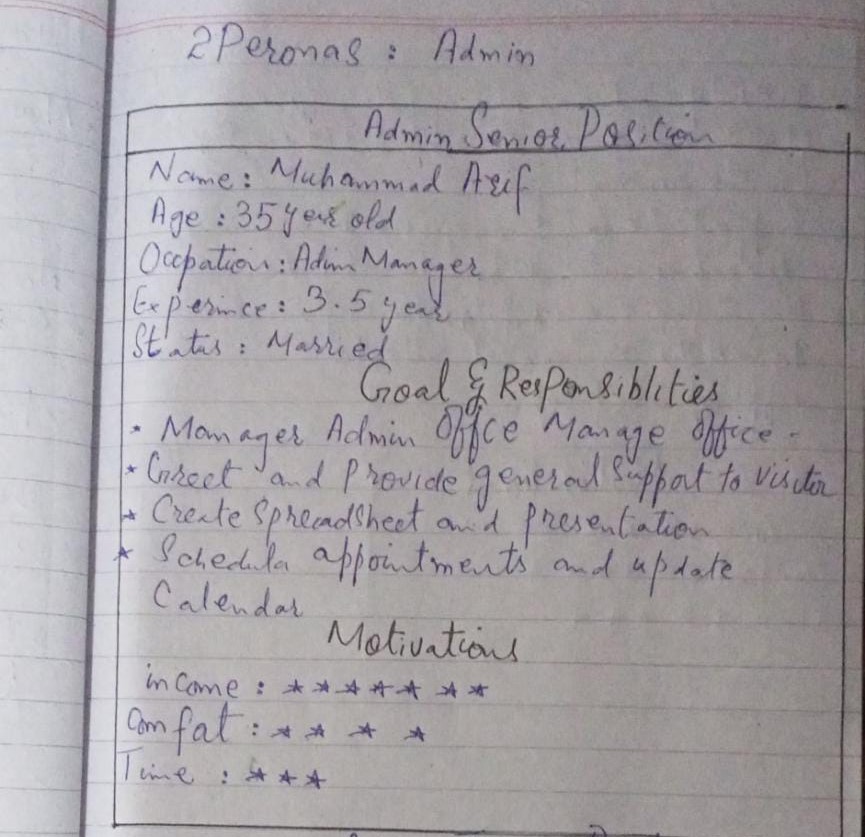 2 Peronas : Admin
Admin Senior Position
Name : Muhammad Arif
Age : 35 year old
Occpation : Adim Manager
Experince : 3.5 year
Status : Married
Goal & Responsiblities
* Manager Admin Offce Manage office -
* Greet and Provide general Support to Visitor
* Create Spreadsheet and presentation
* Schedula appointments and update
Calendar
Motivations
income : * * * * * * *
Comfat : * * * *
Time : * * *